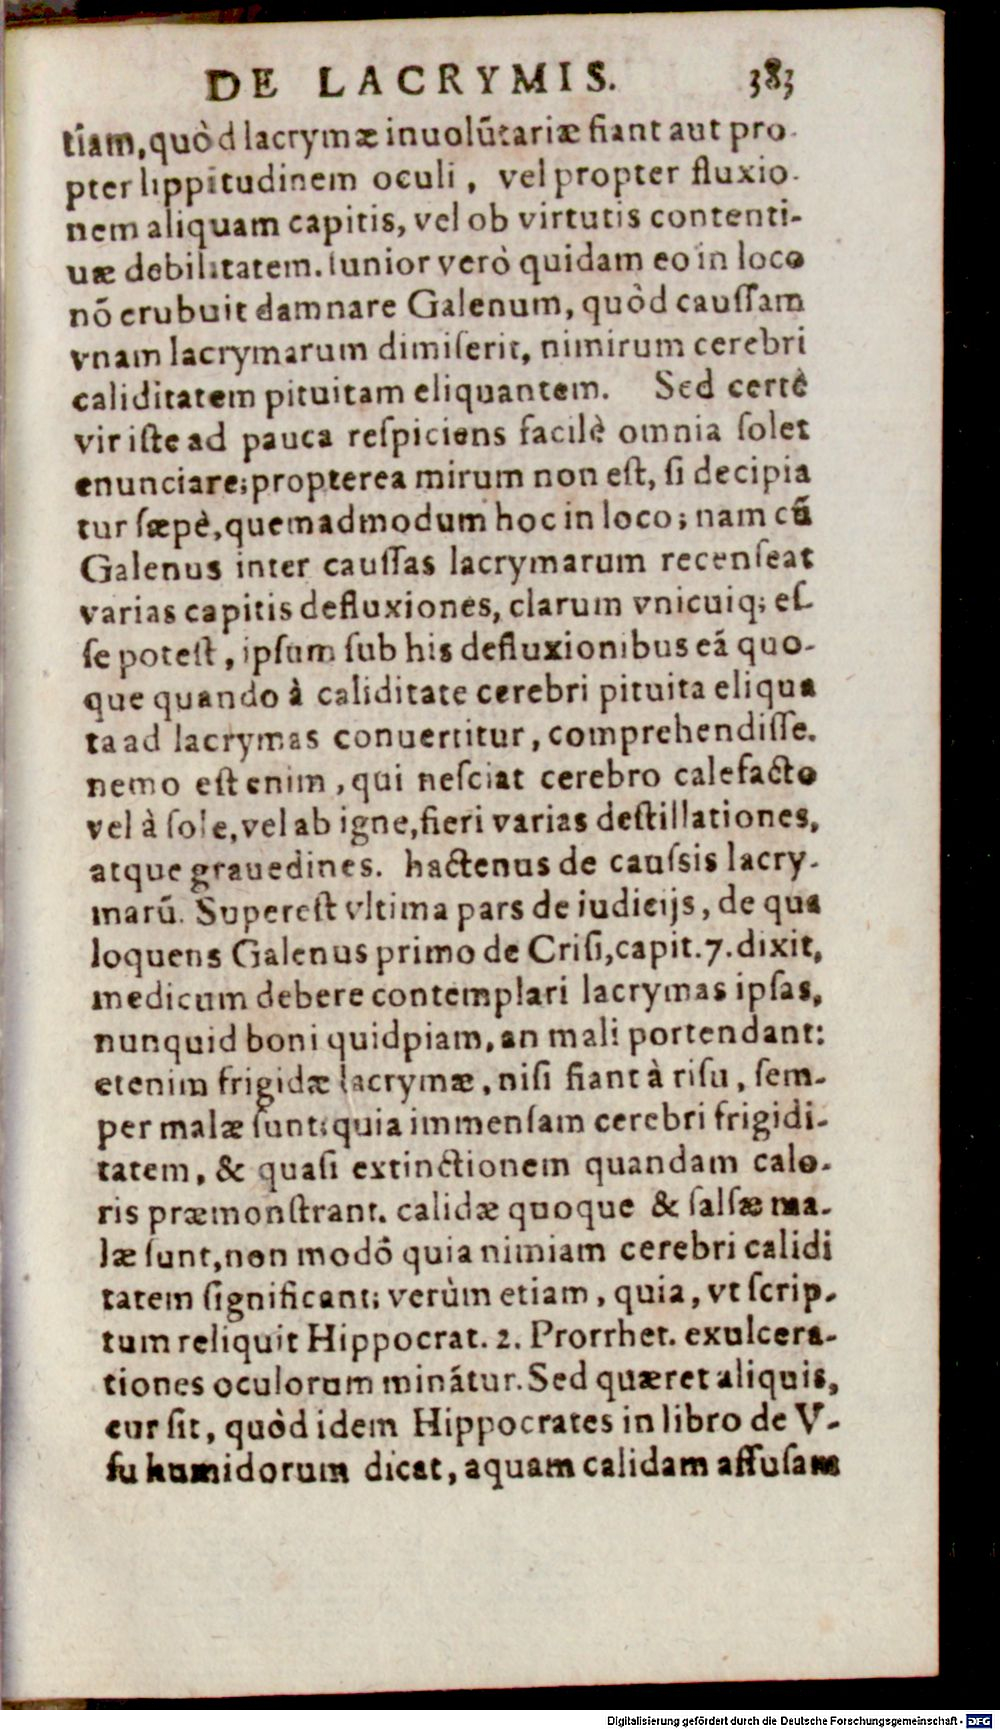 DE LACRYMIS. 383
tiam, quòd lacrymæ inuolũtariæ fiant aut pro-
pter lippitudinem oculi, vel propter fluxio-
nem aliquam capitis, vel ob virtutis contenti-
uæ debilitatem. Iunior verò quidam eo in loco
nõ erubuit damnare Galenum, quòd cauſſam
vnam lacrymarum dimiſerit, nimirum cerebri
caliditatem pituitam eliquantem. Sed certè
vir iſte ad pauca reſpiciens facilè omnia ſolet
enunciare; propterea mirum non eſt, ſi decipia
tur ſæpè, quemadmodum hoc in loco; nam cũ
Galenus inter cauſſas lacrymarum recenſeat
varias capitis defluxiones, clarum vnicuiq; eſ-
ſe poteſt, ipſum ſub his defluxionibus eã quo-
que quando à caliditate cerebri pituita eliqua
ta ad lacrymas conuertitur, comprehendiſſe.
nemo eſt enim, qui neſciat cerebro calefacto
vel à ſole, vel ab igne, fieri varias deſtillationes,
atque grauedines. hactenus de cauſsis lacry-
marũ. Supereſt vltima pars de iudicijs, de qua
loquens Galenus primo de Criſi, capit. 7. dixit,
medicum debere contemplari lacrymas ipſas,
nunquid boni quidpiam, an mali portendant:
etenim frigidæ lacrymæ, niſi fiant à riſu, ſem-
per malæ ſunt; quia immenſam cerebri frigidi-
tatem, & quaſi extinctionem quandam calo-
ris præmonſtrant. calidæ quoque & ſalſæ ma-
læ ſunt, non modò quia nimiam cerebri calidi
tatem ſignificant; verùm etiam, quia, vt ſcrip-
tum reliquit Hippocrat. 2. Prorrhet. exulcera-
tiones oculorum minãtur. Sed quæret aliquis,
cur ſit, quòd idem Hippocrates in libro de V-
ſu humidorum dicat, aquam calidam affuſam
Digitalisierung gefördert durch die Deutsche Forschungsgemeinschaft - DFG